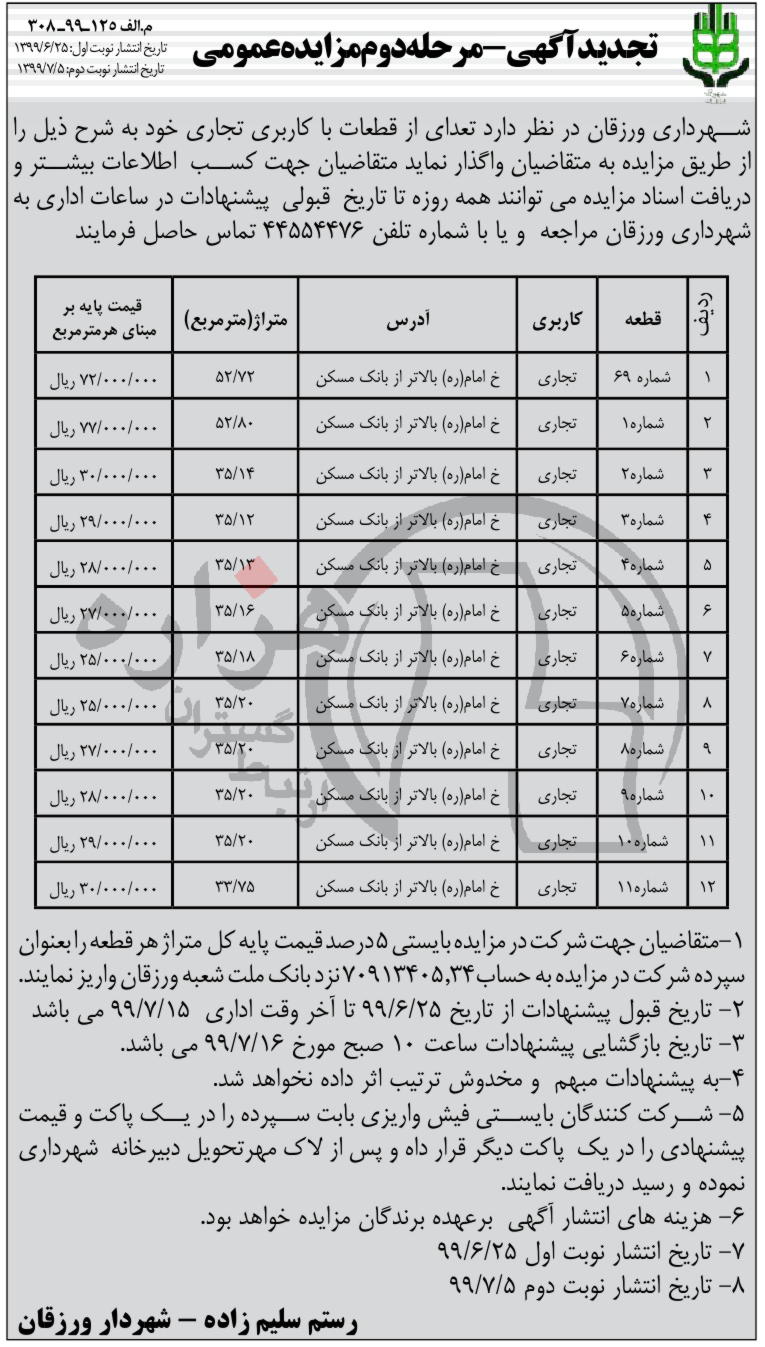 م.الف ۱۲۵ـ۹۹ـ۳۰۸
تاریخ انتشار نوبت اول: ۱۳۹۹/۶/۲۵
تاریخ انتشار نوبت دوم: ۱۳۹۹/۷/۵
تجدیدآگهی–مرحله دوم مزایده عمومی
شهرداری ورزقان در نظر دارد تعدای از قطعات با کاربری تجاری خود به شرح ذیل را
از طریق مزایده به متقاضیان واگذار نماید متقاضیان جهت کسب اطلاعات بیشتر و
دریافت اسناد مزایده می توانند همه روزه تا تاریخ قبولی پیشنهادات در ساعات اداری به
شهرداری ورزقان مراجعه و یا با شماره تلفن ۴۴۵۵۴۴۷۶ تماس حاصل فرمایند
ردیف قطعه کاربری آدرس متراژ(مترمربع) قیمت پایه بر مبنای هرمترمربع
۱ شماره ۶۹ تجاری خ امام(ره) بالاتر از بانک مسکن ۵۲/۷۲ ۷۲/۰۰۰/۰۰۰ ریال
۲ شماره۱ تجاری خ امام(ره) بالاتر از بانک مسکن ۵۲/۸۰ ۷۷/۰۰۰/۰۰۰ ریال
۳ شماره۲ تجاری خ امام(ره) بالاتر از بانک مسکن ۳۵/۱۴ ۳۰/۰۰۰/۰۰۰ ریال
۴ شماره۳ تجاری خ امام(ره) بالاتر از بانک مسکن ۳۵/۱۲ ۲۹/۰۰۰/۰۰۰ ریال
۵ شماره۴ تجاری خ امام(ره) بالاتر از بانک مسکن ۳۵/۱۳ ۲۸/۰۰۰/۰۰۰ ریال
۶ شماره۵ تجاری خ امام(ره) بالاتر از بانک مسکن ۳۵/۱۶ ۲۷/۰۰۰/۰۰۰ ریال
۷ شماره۶ تجاری خ امام(ره) بالاتر از بانک مسکن ۳۵/۱۸ ۲۵/۰۰۰/۰۰۰ ریال
۸ شماره۷ تجاری خ امام(ره) بالاتر از بانک مسکن ۳۵/۲۰ ۲۵/۰۰۰/۰۰۰ ریال
۹ شماره۸ تجاری خ امام(ره) بالاتر از بانک مسکن ۳۵/۲۰ ۲۷/۰۰۰/۰۰۰ ریال
۱۰ شماره۹ تجاری خ امام(ره) بالاتر از بانک مسکن ۳۵/۲۰ ۲۸/۰۰۰/۰۰۰ ریال
۱۱ شماره۱۰ تجاری خ امام(ره) بالاتر از بانک مسکن ۳۵/۲۰ ۲۹/۰۰۰/۰۰۰ ریال
۱۲ شماره۱۱ تجاری خ امام(ره) بالاتر از بانک مسکن ۳۳/۷۵ ۳۰/۰۰۰/۰۰۰ ریال
هزاره
گستران
ارتباط
۱–متقاضیان جهت شرکت در مزایده بایستی ۵درصد قیمت پایه کل متراژ هر قطعه را بعنوان
سپرده شرکت در مزایده به حساب۷۰۹۱۳۴۰۵,۳۴نزد بانک ملت شعبه ورزقان واریز نمایند.
۲– تاریخ قبول پیشنهادات از تاریخ ۹۹/۶/۲۵ تا آخر وقت اداری ۹۹/۷/۱۵ می باشد
۳– تاریخ بازگشایی پیشنهادات ساعت ۱۰ صبح مورخ ۹۹/۷/۱۶ می باشد.
۴–به پیشنهادات مبهم و مخدوش ترتیب اثر داده نخواهد شد.
۵– شرکت کنندگان بایستی فیش واریزی بابت سپرده را در یک پاکت و قیمت
پیشنهادی را در یک پاکت دیگر قرار داه و پس از لاک مهرتحویل دبیرخانه شهرداری
نموده و رسید دریافت نمایند.
۶– هزینه های انتشار آگهی برعهده برندگان مزایده خواهد بود.
۷– تاریخ انتشار نوبت اول ۹۹/۶/۲۵
۸– تاریخ انتشار نوبت دوم ۹۹/۷/۵
رستم سلیم زاده – شهردار ورزقان